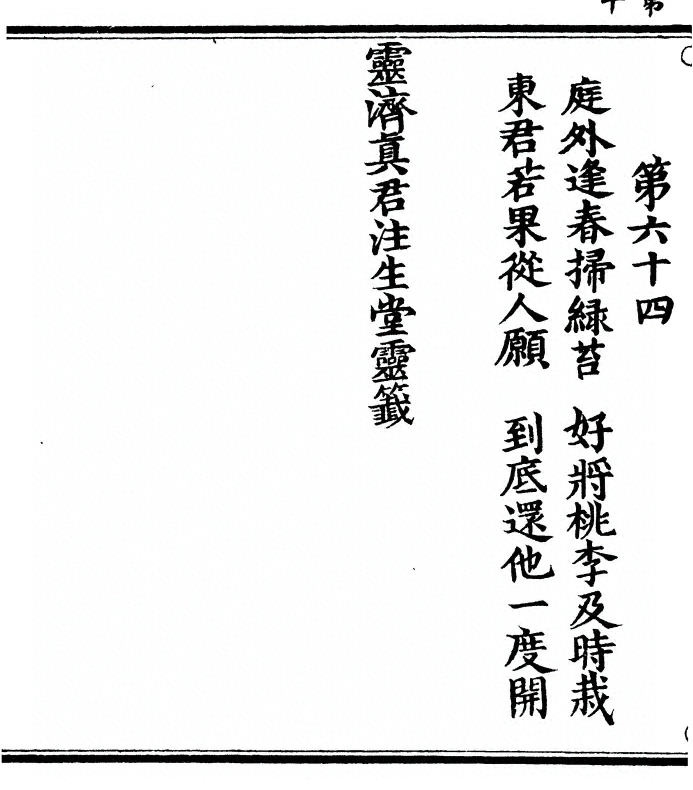 第六十四
庭外逢春掃緑苔　好將桃李及時栽
東君若果從人願　到底還他一度開
靈濟真君注生堂靈籤